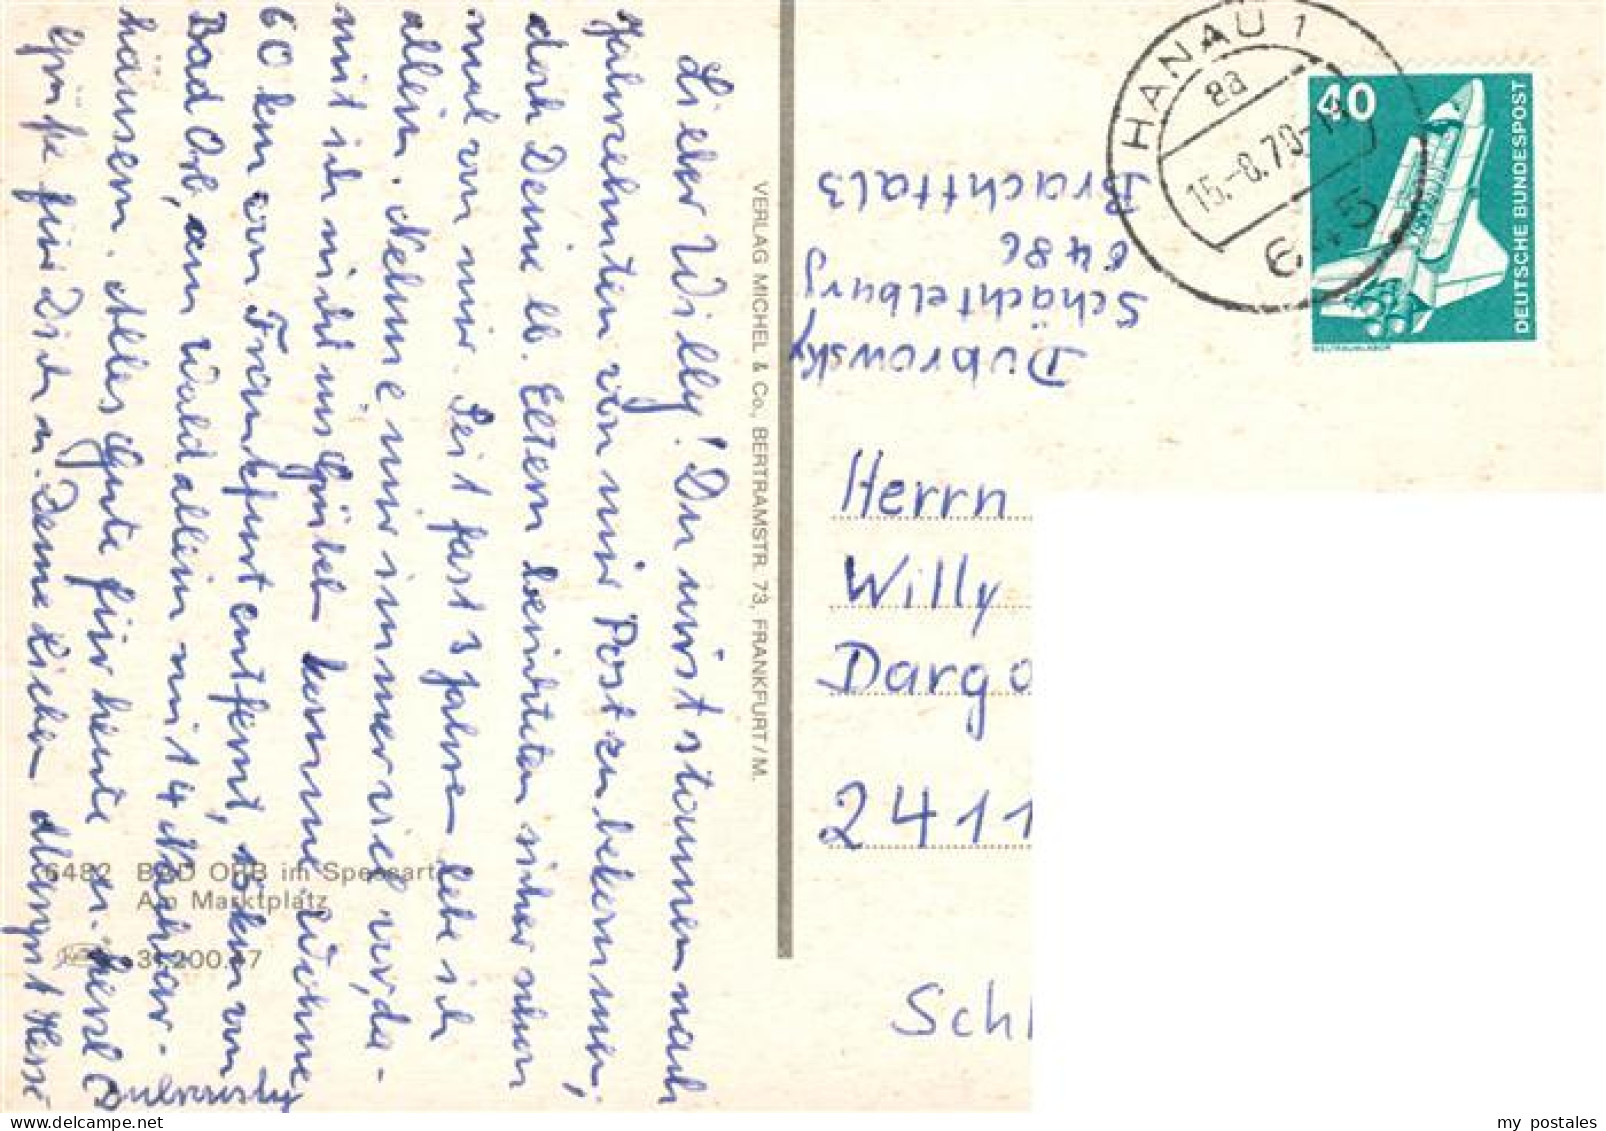 Lieber Willy! Du wirst staunen nach
Jahrzehnten von mir Post zu bekommen,
doch Deine lb. Eltern berichten sicher schon
mal von mir. Seit fast 3 Jahren lebe ich
allein. Nehme mir immer viel vor, da-
mit ich nicht ins Grübeln komme. Wohne
60 km von Frankfurt entfernt, 15 km von
Bad Orb, am Wald allein mit 4 Nachbar-
häusern. Alles Gute für heute u. herzl.
Grüße für Dich u. Deine Lieben
Dubrowsky
6482 BAD ORB im Spessart
Am Marktplatz
31.200.47
VERLAG MICHEL & Co., BERTRAMSTR. 73, FRANKFURT/M.
Dubrowsky
Schächtelburg
6486
Brachttal 3
HANAU 1
ea
645
40
DEUTSCHE BUNDESPOST
WELTRAUMLABOR
Herrn
Willy
Dargo
2411
Sch
my postales